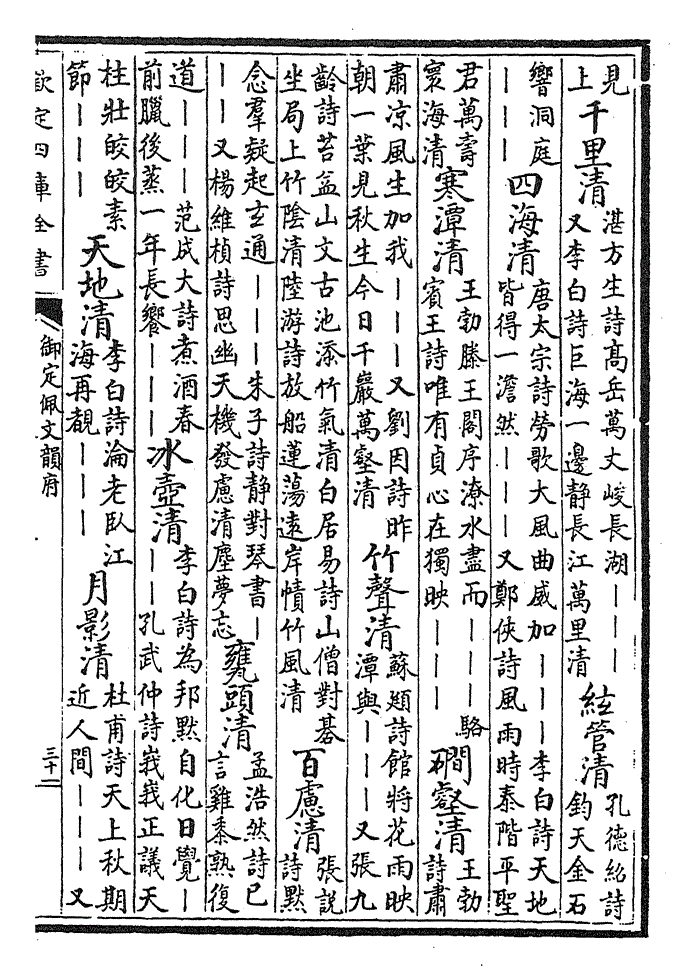 見上千里清湛方生詩髙岳萬丈峻長湖｜｜｜又李白詩巨海一邊靜長江萬里清絃管清孔德紹詩鈞天金石
響洞庭｜｜｜四海清唐太宗詩勞歌大風曲威加｜｜｜李白詩天地皆得一澹然｜｜｜又鄭俠詩風雨時泰階平聖
君萬壽寰海清寒潭清王勃滕王閣序潦水盡而｜｜｜駱賓王詩唯有貞心在獨映｜｜｜磵壑清王勃詩肅
肅凉風生加我｜｜｜又劉因詩昨朝一葉見秋生今日千巖萬壑清竹聲清蘇頲詩館將花雨映潭與｜｜｜又張九
齡詩苔益山文古池添竹氣清白居易詩山僧對棊坐局上竹陰清陸游詩放船蓮蕩遠岸幘竹風清百慮清張說詩默
念羣疑起玄通｜｜｜朱子詩静對琴書｜｜｜又楊維楨詩思幽天機發慮清塵夢忘甕頭清孟浩然詩已言雞黍熟復
道｜｜｜范成大詩煮酒春前臘後蒸一年長饗｜｜｜冰壺清李白詩為邦黙自化日覺｜｜｜孔武仲詩峩峩正議天
柱壯皎皎素節｜｜｜天地清李白詩淪老臥江海再覩｜｜｜月影清杜甫詩天上秋期近人間｜｜｜又
欽定四庫全書
御定佩文韻府
三十二